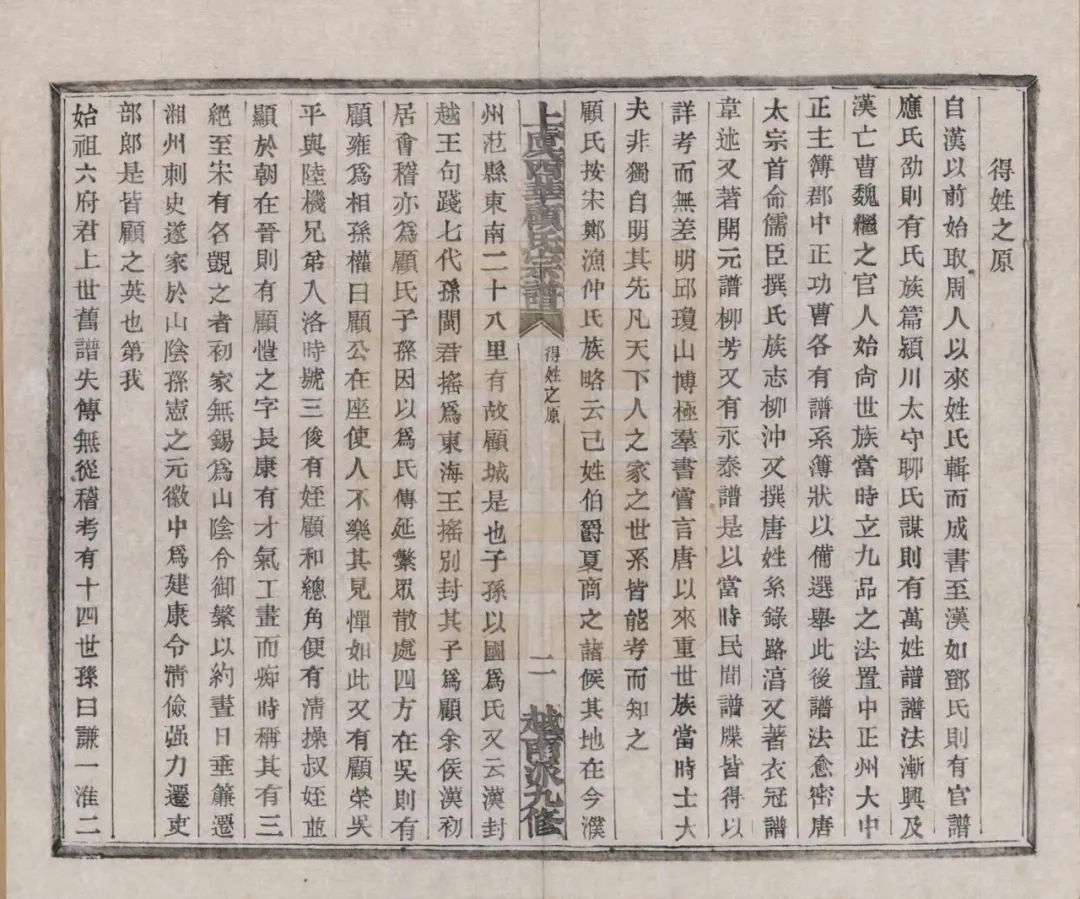 得姓之原
自漢以前始取周人以來姓氏輯而成書至漢如鄧氏則有官譜
應氏劭則有氏族篇潁川太守聊氏謀則有萬姓譜譜法漸興及
漢亡曹魏繼之官人始尙世族當時立九品之法置中正州大中
正主簿郡中正功曹各有譜系簿狀以備選舉此後譜法愈密唐
太宗首命儒臣撰氏族志柳沖又撰唐姓糸錄路淳又著衣冠譜
韋述又著開元譜柳芳又有永泰譜是以當時民間譜牒皆得以
詳考而無差明邱瓊山博極羣書嘗言唐以來重世族當時士大
夫非獨自明其先凡天下人之家之世系皆能考而知之
顧氏按宋鄭漁仲氏族略云己姓伯爵夏商之諸侯其地在今濮
上虞西華顧氏宗譜
得姓之原
二
越南派九修
州范縣東南二十八里有故顧城是也子孫以國爲氏又云漢封
越王句踐七代孫閩君搖爲東海王搖別封其子爲顧余侯漢初
居會稽亦爲顧氏子孫因以爲氏傳延繁眾散處四方在吳則有
顧雍爲相孫權曰顧公在座使人不樂其見憚如此又有顧榮吳
平與陸機兄弟入洛時號三俊有姪顧和總角便有清操叔姪並
顯於朝在晉則有顧愷之字長康有才氣工畫而痴時稱其有三
絕至宋有名覬之者初家無錫爲山陰令御繁以約晝日垂簾遷
湘州刺史遂家於山陰孫憲之元徽中爲建康令清儉强力遷吏
部郞是皆顧之英也第我
始祖六府君上世舊譜失傳無從稽考有十四世孫曰謙一淮二